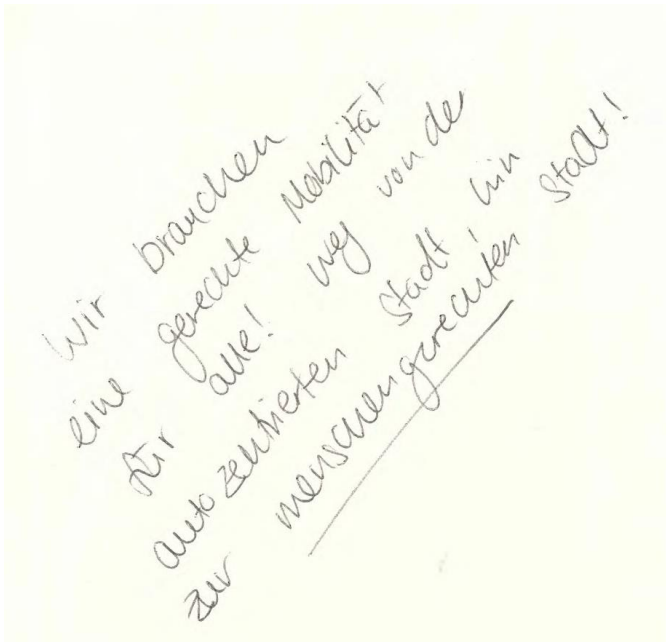 Wir brauchen
eine gerechte Mobilität
für alle! weg von der
autozentrierten Stadt, hin
zur menschengerechten Stadt!